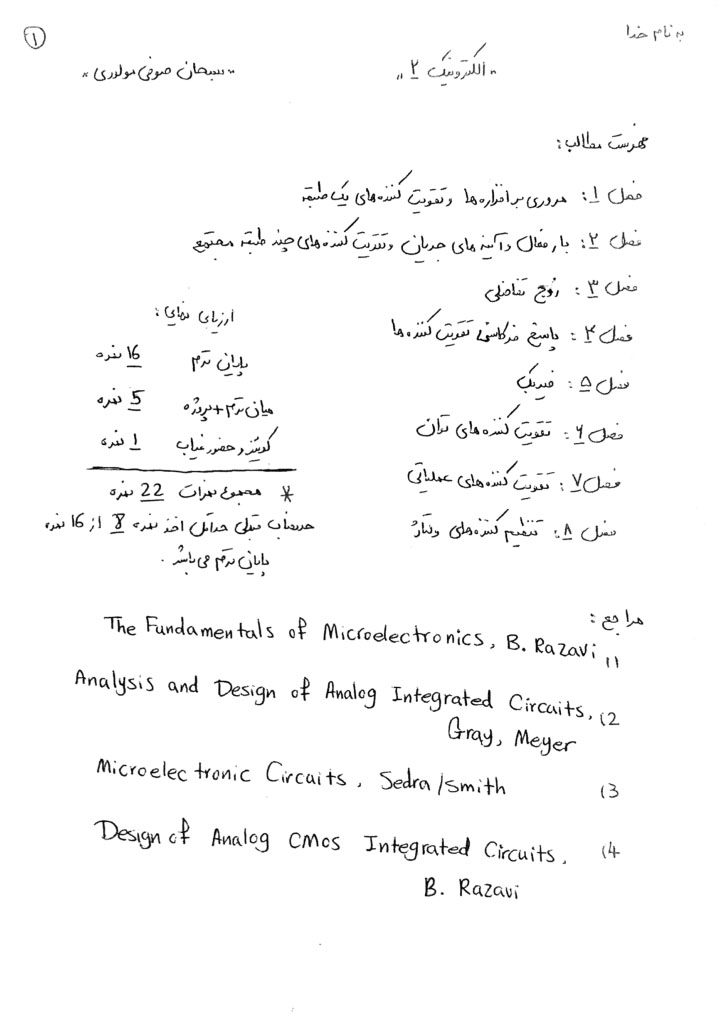 به نام خدا
۱
"الکترونیک ۲"
"سبحان صوفی مولودی"
فهرست مطالب:
فصل ۱: مروری بر افزاره‌ها و تقویت کننده‌های یک طبقه
فصل ۲: بار فعال و آینه های جریان و تقویت کننده‌های چند طبقه مجتمع
فصل ۳: زوج تفاضلی
فصل ۴: پاسخ فرکانسی تقویت کننده ها
فصل ۵: فیدبک
فصل ۶: تقویت کننده‌های توان
فصل ۷: تقویت کننده‌های عملیاتی
فصل ۸: تنظیم کننده‌های ولتاژ
ارزیابی نهایی:
پایان ترم 16 نمره
میان ترم + پروژه 5 نمره
کوئیز و حضور غیاب 1 نمره
* مجموع نمرات 22 نمره
حداقل اخذ نمره 8 از 16 نمره
پایان ترم می باشد.
مراجع:
1) The Fundamentals of Microelectronics, B. Razavi
2) Analysis and Design of Analog Integrated Circuits,
Gray, Meyer
3) Microelectronic Circuits, Sedra/smith
4) Design of Analog CMOS Integrated Circuits,
B. Razavi